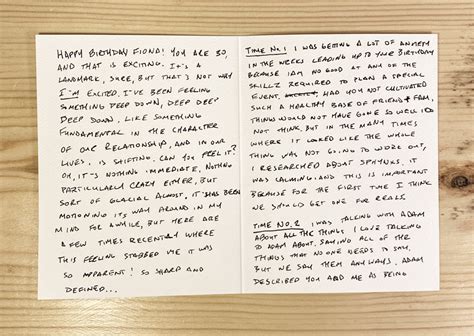 HAPPY BIRTHDAY FIONA! YOU ARE 30,
AND THAT IS EXCITING. IT'S A
LANDMARK, SURE, BUT THAT'S NOT WHY
I'M EXCITED. I'VE BEEN FEELING
SOMETHING DEEP DOWN, DEEP DEEP
DEEP DOWN. LIKE SOMETHING
FUNDAMENTAL IN THE CHARACTER
OF OUR RELATIONSHIP, AND IN OUR
LIVES, IS SHIFTING. CAN YOU FEEL IT?
OH, IT'S NOTHING IMMEDIATE, NOTHING
PARTICULARLY CRAZY EITHER, BUT
SORT OF GLACIAL ALMOST, IT'S BEEN
MOTIONING ITS WAY AROUND IN MY
MIND FOR AWHILE, BUT HERE ARE
A FEW TIMES RECENTLY WHERE
THIS FEELING STABBED ME IT WAS
SO APPARENT! SO SHARP AND
DEFINED...
TIME NO. 1 I WAS GETTING A LOT OF ANXIETY
IN THE WEEKS LEADING UP TO YOUR BIRTHDAY
BECAUSE I AM NO GOOD AT ANY OF THE
SKILLZ REQUIRED TO PLAN A SPECIAL
EVENT. HAD YOU NOT CULTIVATED
SUCH A HEALTHY BASE OF FRIENDS + FAM,
THINGS WOULD NOT HAVE GONE SO WELL. IDK
NOT THINK, BUT IN THE MANY TIMES
WHERE IT LOOKED LIKE THE WHOLE
THING WAS NOT GOING TO WORK OUT,
I RESEARCHED ABOUT SPHYNXS. IT
WAS CALMING AND THIS IS IMPORTANT
BECAUSE FOR THE FIRST TIME I THINK
WE SHOULD GET ONE FOR REALS.
TIME NO. 2 I WAS TALKING WITH ADAM
ABOUT ALL THE THINGS I LOVE TALKING
TO ADAM ABOUT, SAYING ALL OF THE
THINGS THAT NO ONE NEEDS TO SAY,
BUT WE SAY THEM ANYWAYS. ADAM
DESCRIBED YOU AND ME AS BEING